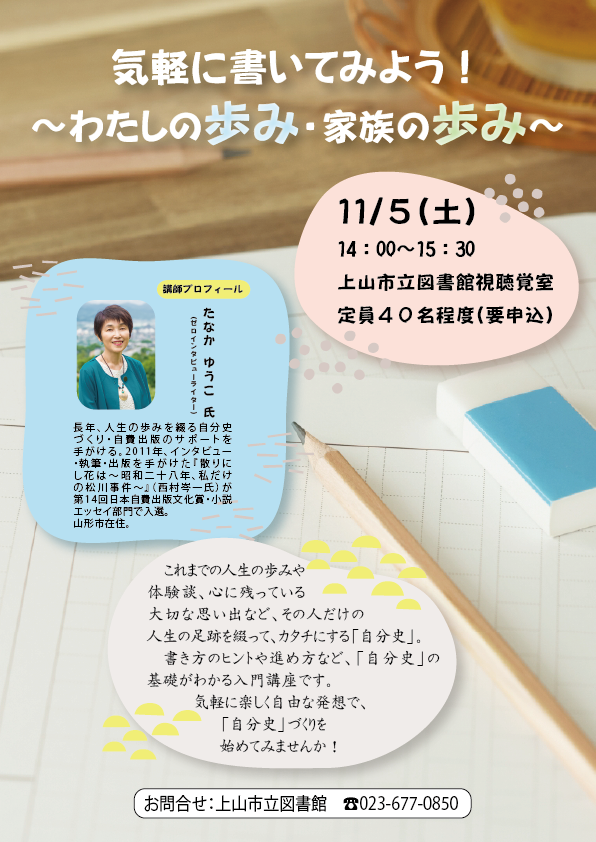 気軽に書いてみよう！
～わたしの歩み・家族の歩み～
11/5(土)
14：00～15：30
上山市立図書館視聴覚室
定員４０名程度(要申込)
講師プロフィール
たなか ゆうこ 氏
(ゼロインタビューライター)
長年、人生の歩みを綴る自分史
づくり・自費出版のサポートを
手がける。2011年、インタビュー
・執筆・出版を手がけた『散りに
し花は～昭和二十八年、私だけ
の松川事件～』（西村岑一氏）が
第14回日本自費出版文化賞・小説
エッセイ部門で入選。
山形市在住。
これまでの人生の歩みや
体験談、心に残っている
大切な思い出など、その人だけの
人生の足跡を綴って、カタチにする「自分史」。
書き方のヒントや進め方など、「自分史」の
基礎がわかる入門講座です。
気軽に楽しく自由な発想で、
「自分史」づくりを
始めてみませんか！
お問合せ：上山市立図書館　☎023-677-0850